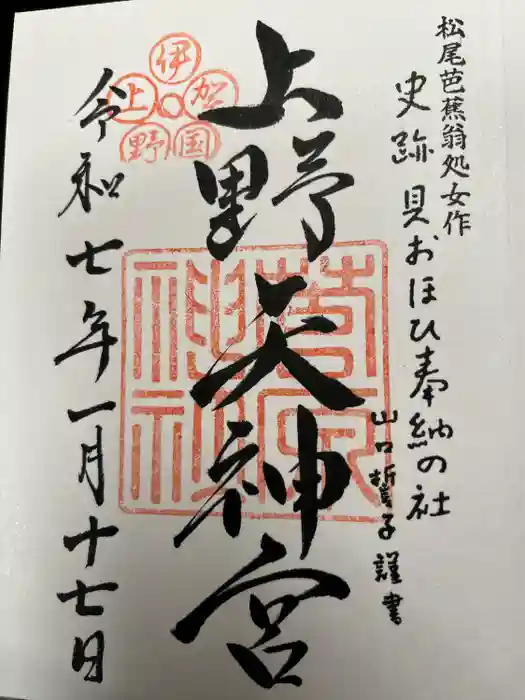 松尾芭蕉翁処女作
史跡貝おほひ奉納の社
山口哲子謹書
上野天神宮
伊賀国上野
令和七年一月十七日